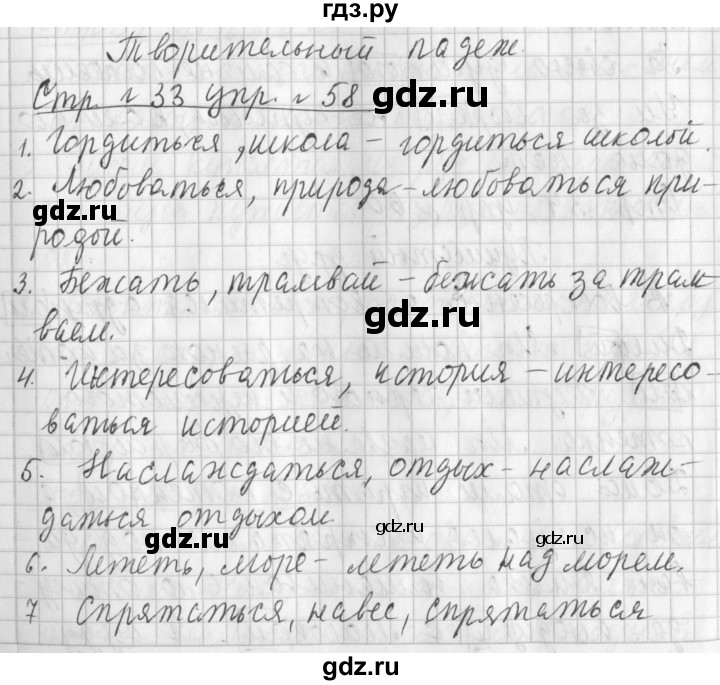 гдз.ру
Творительный падеж.
Стр. 33 упр. 58
1. Гордиться, школа – гордиться школой.
2. Любоваться, природа – любоваться при-
gdz.ru
родой.
3. Бежать, трамвай – бежать за трам-
gdz.ru
ваем.
4. Интересоваться, история – интересо-
ваться историей.
5. Наслаждаться, отдых – наслаж-
даться отдыхом
gdz.ru
gdz.ru
gdz.ru
6. Лететь, море – лететь над морем.
7 Спрятаться, навес, спрятаться
gdz.ru